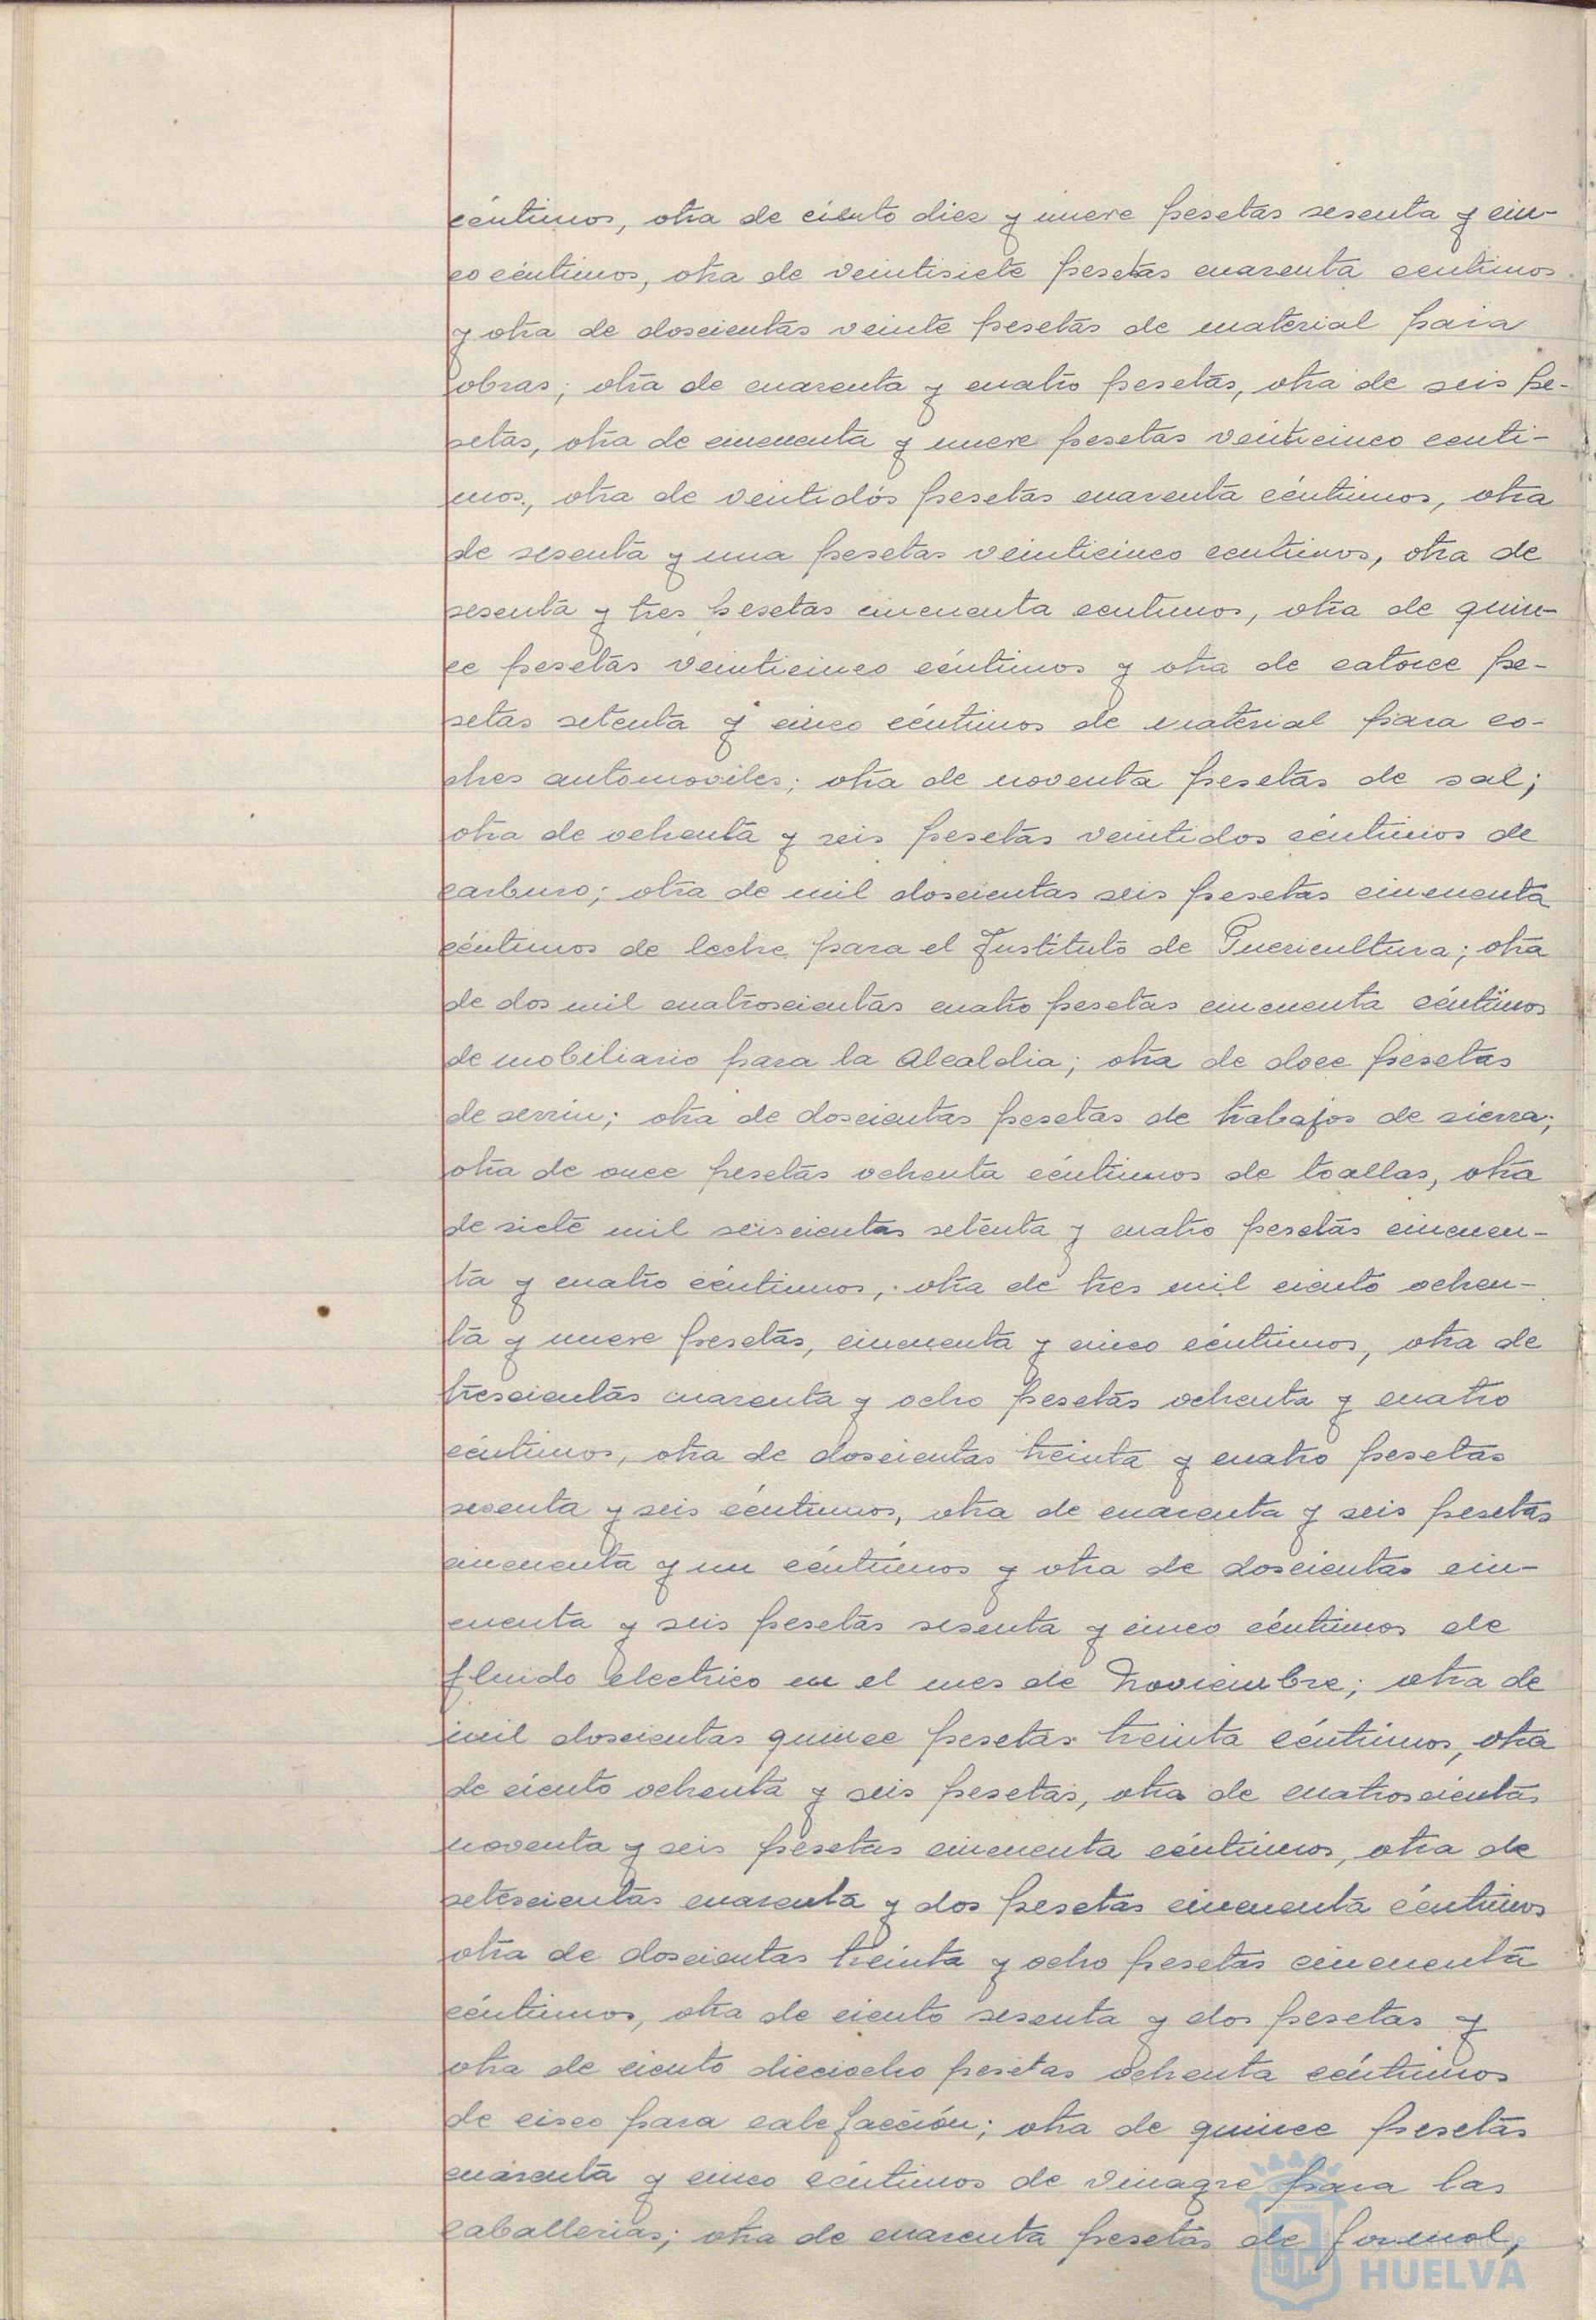 céntimos, otra de ciento diez y nueve pesetas sesenta y cin-
co céntimos, otra de veintisiete pesetas cuarenta centimos
y otra de doscientas veinte pesetas de material para
obras; otra de cuarenta y cuatro pesetas, otra de seis pe-
setas, otra de cincuenta y nueve pesetas veinticinco centi-
mos, otra de veintidós pesetas cuarenta céntimos, otra
de sesenta y una pesetas veinticinco centimos, otra de
sesenta y tres pesetas cincuenta centimos, otra de quin-
ce pesetas veinticinco céntimos y otra de catorce pe-
setas setenta y cinco céntimos de material para co-
ches automoviles; otra de noventa pesetas de sal;
otra de ochenta y seis pesetas veintidos céntimos de
carburo; otra de mil doscientas seis pesetas cincuenta
céntimos de leche para el Instituto de Puericultura; otra
de dos mil cuatroscientas cuatro pesetas cincuenta céntimos
de mobiliario para la Alcaldia; otra de doce pesetas
de serrin; otra de doscientas pesetas de trabajos de sierra;
otra de once pesetas ochenta céntimos de toallas, otra
de siete mil seiscientas setenta y cuatro pesetas cincuen-
ta y cuatro céntimos, otra de tres mil ciento ochen-
ta y nueve pesetas, cincuenta y cinco céntimos, otra de
trescientas cuarenta y ocho pesetas ochenta y cuatro
céntimos, otra de doscientas treinta y cuatro pesetas
sesenta y seis céntimos, otra de cuarenta y seis pesetas
cincuenta y un céntimos y otra de doscientas cin-
cuenta y seis pesetas sesenta y cinco céntimos de
fluido electrico en el mes de Noviembre; otra de
mil doscientas quince pesetas treinta céntimos, otra
de ciento ochenta y seis pesetas, otra de cuatroscientas
noventa y seis pesetas cincuenta céntimos, otra de
setescientas cuarenta y dos pesetas cincuenta céntimos
otra de doscientas treinta y ocho pesetas cincuenta
céntimos, otra de ciento sesenta y dos pesetas y
otra de ciento dieciocho pesetas ochenta céntimos
de cisco para calefacción; otra de quince pesetas
cuarenta y cinco céntimos de vinagre para las
caballerias; otra de cuarenta pesetas de formol,
HUELVA